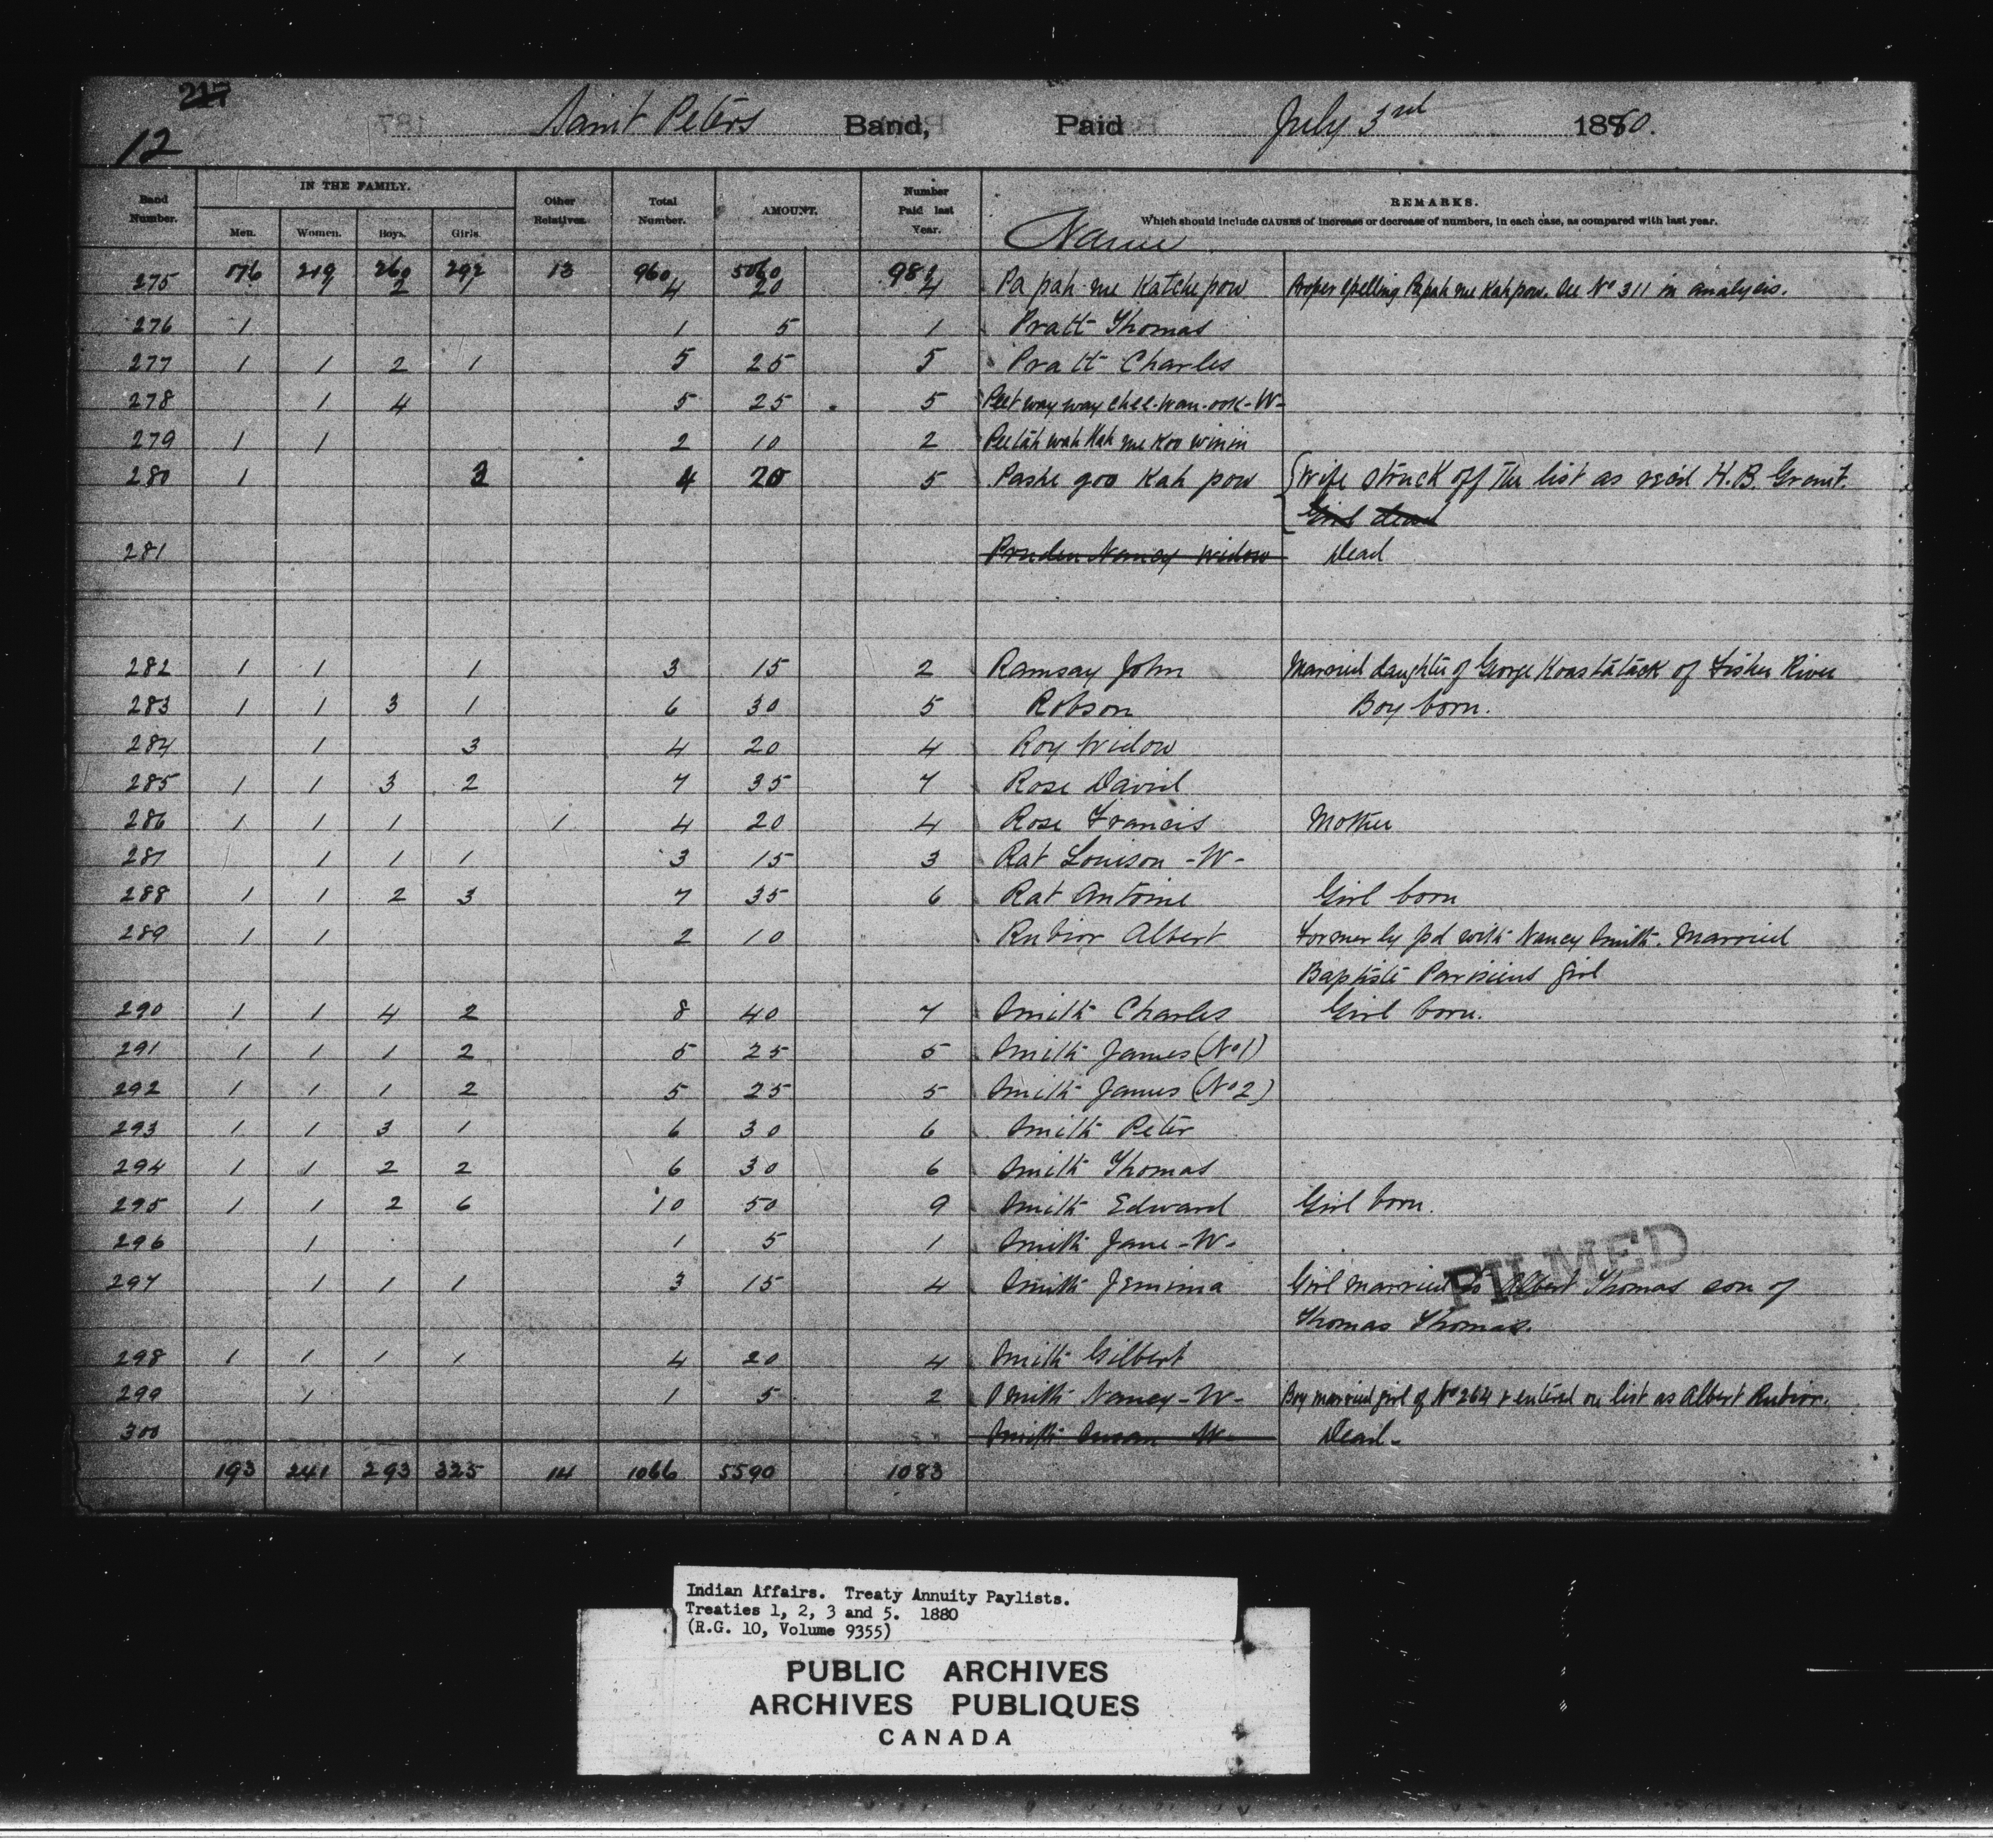 217
12 Saint Peters Band, Paid July 3rd 1880.
Band Number. IN THE FAMILY. Men. Women. Boys. Girls. Other Relatives. Total Number. AMOUNT. Number Paid last Year. Name REMARKS.
Which should include CAUSES of increase or decrease of numbers, in each case, as compared with last year.
176 219 260 292 13 960 5060 982
275 1 1 2 4 20 4 Pa pah me Katche pow Proper spelling Papah me Kah pow. See No 311 in analysis.
276 1 1 5 1 Pratt Thomas
277 1 1 2 1 5 25 5 Pratt Charles
278 1 4 5 25 5 Peet way way chee-wan-ook-W-
279 1 1 2 10 2 Pee tah wah Kah me Koo winin
280 1 3 4 20 5 Pashe goo Kah pow {Wife struck off the list as rec'd H.B. Grant.
Girl dead
281 Pruden Nancy Widow Dead
282 1 1 1 3 15 2 Ramsay John Married daughter of George Konstatack of Fisher River
283 1 1 3 1 6 30 5 Robson Boy born.
284 1 3 4 20 4 Roy Widow
285 1 1 3 2 7 35 7 Rose David
286 1 1 1 1 4 20 4 Rose Francis Mother
287 1 1 1 3 15 3 Rat Louison -W-
288 1 1 2 3 7 35 6 Rat Antoine Girl born
289 1 1 2 10 Rubior Albert Formerly pd with Nancy Smith. Married
Baptiste Parisiens girl
290 1 1 4 2 8 40 7 Smith Charles Girl born.
291 1 1 1 2 5 25 5 Smith James (No 1)
292 1 1 1 2 5 25 5 Smith James (No 2)
293 1 1 3 1 6 30 6 Smith Peter
294 1 1 2 2 6 30 6 Smith Thomas
295 1 1 2 6 10 50 9 Smith Edward Girl born.
296 1 1 5 1 Smith Jane -W-
FILMED
297 1 1 1 3 15 4 Smith Jemima Girl married to Albert Thomas son of
Thomas Thomas.
298 1 1 1 1 4 20 4 Smith Gilbert
299 1 1 5 2 Smith Nancy -W- Boy married girl of No 264 & entered on list as Albert Rubior.
300 Smith Susan W- Dead-
193 241 293 325 14 1066 5590 1083
Indian Affairs. Treaty Annuity Paylists.
Treaties 1, 2, 3 and 5. 1880
(R.G. 10, Volume 9355)
PUBLIC ARCHIVES
ARCHIVES PUBLIQUES
CANADA